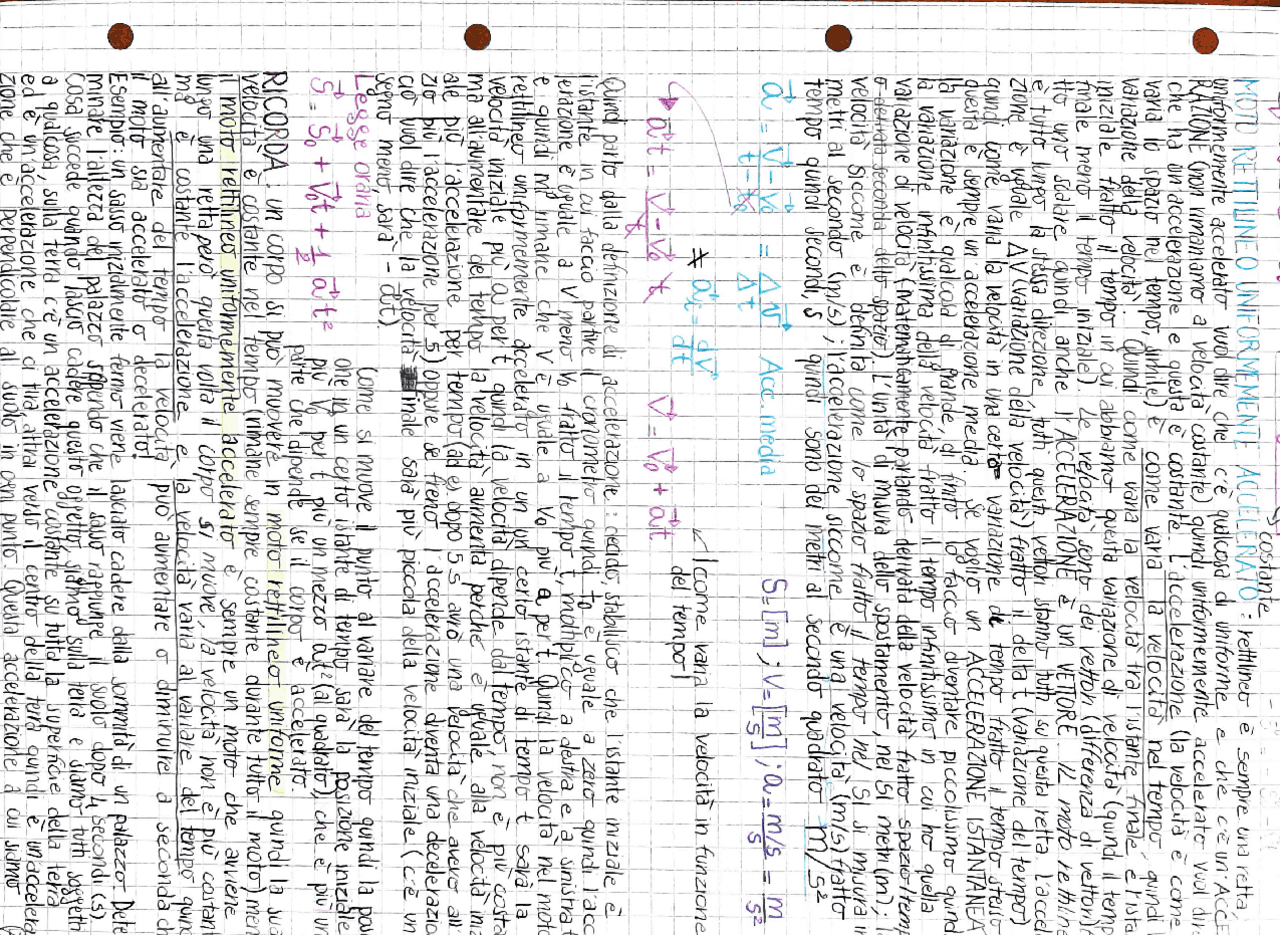 costante
MOTO RETTILINEO UNIFORMEMENTE ACCELERATO: rettilineo è sempre una retta,
uniformemente accelerato vuol dire che c'è qualcosa di uniforme e che c'è un' ACCE
RAZIONE (non rimaniamo a velocità costante) quindi uniformemente accelerato vuol dire
che ha un'accelerazione e questa è costante. L'accelerazione (la velocità è come
varia lo spazio nel tempo, simile) è come varia la velocità nel tempo, quindi l
variazione della velocità. Quindi come varia la velocità tra l'istante finale e l'ista
iniziale fratto il tempo in cui abbiamo questa variazione di velocità (quindi il temp
finale meno il tempo iniziale). Le velocità sono dei vettori (differenza di vettori
tto uno scalare, quindi anche l'ACCELERAZIONE È UN VETTORE. IL moto rettiline
è tutto lungo la stessa direzione, tutti questi vettori stanno tutti su questa retta. L'accel
zione è uguale ΔV (variazione della velocità) fratto il delta t (variazione del tempo)
quindi come varia la velocità in una certa variazione di tempo fratto il tempo stesso
questa è sempre un'accelerazione media. Se voglio un' ACCELERAZIONE ISTANTANEA
la variazione è qualcosa di grande, di finito lo faccio diventare piccolissimo quind
la variazione infinitissima della velocità fratto il tempo infinitissimo in cui ho quella
variazione di velocità (Matematicamente parlando derivata della velocità fratto spazio temp
o derivata seconda dello spazio). L'unità di misura dello spostamento, nel SI metri (m); l
velocità siccome è definita come lo spazio fratto il tempo nel SI si misura in
metri al secondo (m/s); l'accelerazione siccome è una velocità (m/s) fratto
tempo quindi secondi, s quindi sono dei metri al secondo quadrato m/s²
a = V - V₀ / t - t₀ = ΔV / Δt Acc. media S = [m] ; V = [m/s] ; a = m/s / s = m/s²
* aᵢ = dV / dt
at = V - V₀ / t × t V = V₀ + at [come varia la velocità in funzione
del tempo]
Quindi parto dalla definizione di accelerazione: decido, stabilisco che l'istante iniziale è
l'istante in cui faccio partire il cronometro quindi t₀ è uguale a zero quindi l'acc
lerazione è uguale a V meno V₀ fratto il tempo t, moltiplico a destra e a sinistra t
e quindi mi rimane che V è uguale a V₀ più a per t. Quindi la velocità nel moto
rettilineo uniformemente accelerato in un certo istante di tempo t sarà la
velocità iniziale più a per t quindi la velocità dipende dal tempo, non è più costa
ma all'aumentare del tempo la velocità aumenta perché è uguale alla velocità ini
ale più l'accelerazione per tempo (ad es dopo 5 s avrò una velocità che avevo all'ini
zio più l'accelerazione per 5) oppure se freno l'accelerazione diventa una decelerazio
ciò vuol dire che la velocità finale sarà più piccola della velocità iniziale (c'è un
segno meno, sarà - at).
Legge oraria
S = S₀ + V₀t + 1/2 at²
Come si muove il punto al variare del tempo quindi la pos
one in un certo istante di tempo sarà la posizione iniziale
più V₀ per t più un mezzo at² (al quadrato), che è più un
parte che dipende se il corpo è accelerato.
RICORDA: un corpo si può muovere in moto rettilineo uniforme quindi la sua
velocità è costante nel tempo (rimane sempre costante durante tutto il moto) men
il moto rettilineo uniformemente accelerato è sempre un moto che avviene
lungo una retta però questa volta il corpo si muove, la velocità non è più costant
ma è costante l'accelerazione e la velocità varia al variare del tempo quind
all'aumentare del tempo la velocità può aumentare o diminuire a seconda ch
il moto sia accelerato o decelerato!
Esempio: un sasso inizialmente fermo viene lasciato cadere dalla sommità di un palazzo. Dete
minare l'altezza del palazzo sapendo che il sasso raggiunge il suolo dopo 4 secondi (s).
Cosa succede quando faccio cadere questo oggetto, siamo sulla terra e siamo tutti soggetti
a qualcosa, sulla terra c'è un'accelerazione costante su tutta la superficie della terra
ed è un'accelerazione che ci tira, attrai verso il centro della terra quindi è un'accelera
zione che è perpendicolare al suolo in ogni punto. Questa accelerazione a cui siamo